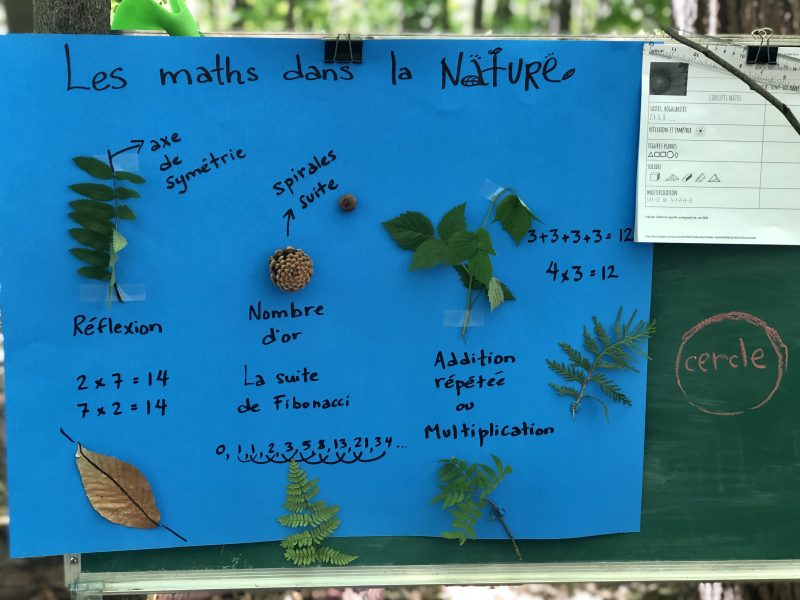 Les maths dans la NATURE.
axe
de
symétrie
Réflexion
2 x 7 = 14
7 x 2 = 14
spirales
suite
Nombre
d'or
La suite
de Fibonacci
0, 1, 1, 2, 3, 5, 8, 13, 21, 34 ...
3+3+3+3 = 12
4 x 3 = 12
Addition
répétée
ou
Multiplication
CONCEPTS MATHS
SUITES, RÉGULARITÉS
RÉFLEXION ET SYMÉTRIE
FIGURES PLANES
SOLIDES
MULTIPLICATION
cercle